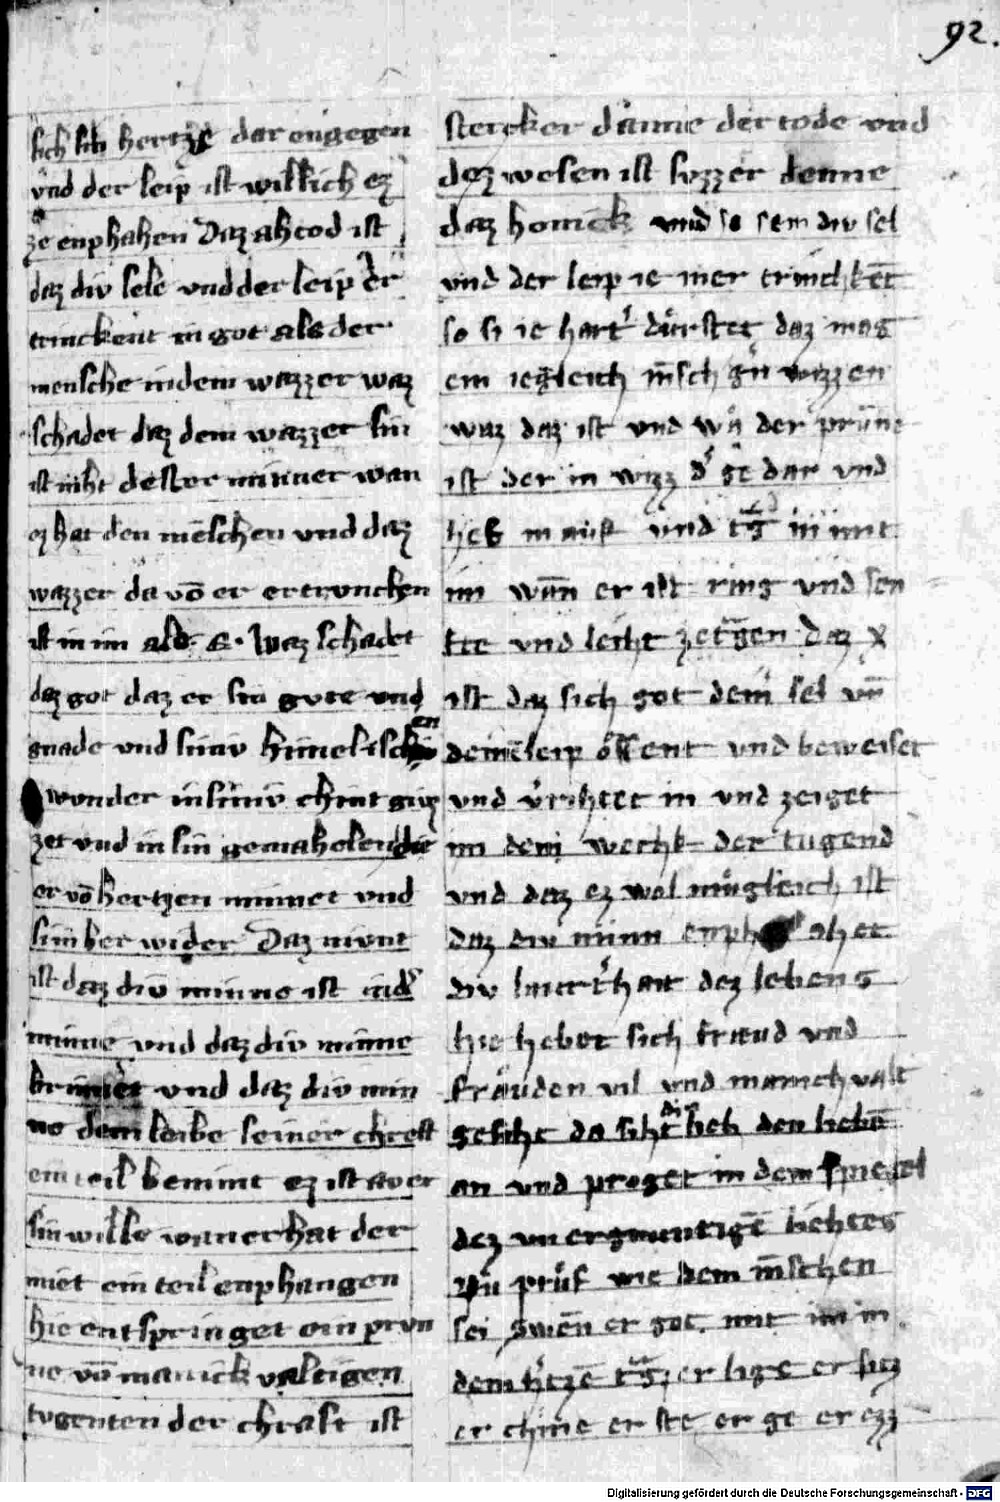 92.
sich sin hertze dar engegen
vnd der leip ist willich ez
ze enphahen Daz ahtod ist
daz div sele vnd der leip er
trinckent in got als der
mensche in dem wazzer waz
schadet daz dem wazzer sin
ist niht dester minner wan
ez hat den mēschen vnd daz
wazzer da vō er ertruncken
ist in im als. Waz schadet
daz got daz er sin gvte vnd
gnade vnd siniv himelischen
wunder in siniv chint giuz
zet vnd in sin gemahelen die
er vō hertzen minnet vnd
sim her wider Daz nivnt
ist daz div minne ist in d
minne vnd daz div minne
vnd daz div min
ne dem leibe seiner chreft
ein teil benimt ez ist aver
sin wille wan er hat der
miet ein teil enphangen
hie entspringet ein prvn
ne vō manick valtigen
tvgenten der chraft ist
stercker danne der tode vnd
daz wesen ist svzzer denne
daz honick vnd so sem div sel
vnd der leip ie mer trinckēt
so si ie hart dürstet daz mag
ein iegleich m̄sch gn wizzen
waz daz ist vnd wa der prünne
ist der in wizz d ge dar vnd
heb in auf vnd in mit
im wān er ist ring vnd sen
fte vnd leiht daz x
ist daz sich got dem sel vn̄
dem leip offent vnd beweiset
vnd vrihtet in vnd zeiget
im dem werchk der tugend
vnd daz ez wol mügleich ist
daz div minn enphahet
div lauterhait dez lebens
hie hebet sich fræud vnd
fräuden vil vnd manichvalt
gesiht da siht din lieb den liebn̄
an vnd preget in dem spiegel
dez vnergruntigē liehtes
Nu prüf wie dem m̄schen
sei swen er got mit im in
dem htzē er lige er sitz
er chine er ste er ge er ezz
Digitalisierung gefördert durch die Deutsche Forschungsgemeinschaft - DFG